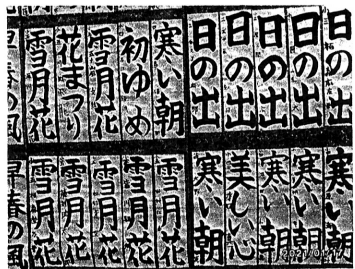 日の出
日の出
日の出
日の出
日の出
寒い朝
初ゆめ
雪月花
花まつり
雪月花
春の風
寒い朝
寒い朝
寒い朝
美しい心
寒い朝
雪月花
雪月花
雪月花
雪月花
雪月花
早春の風
2021/01/17